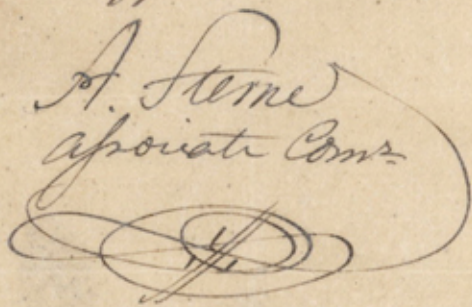 A. Sterne
associate Comr